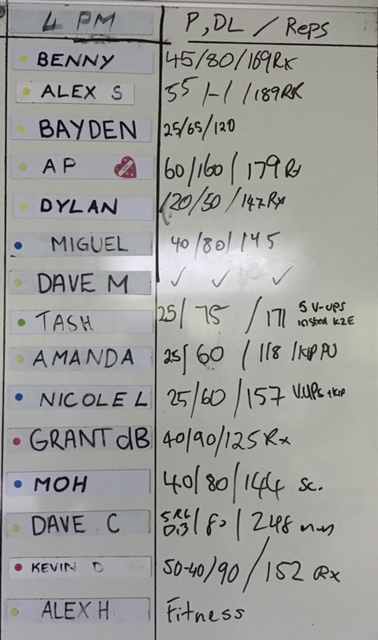 4 PM P, DL / Reps
BENNY 45/80/169Rx
ALEX S 55 /-/ /189RX
BAYDEN 25/65/120
AP 60/160/179Rx
DYLAN 120/50/147Rx
MIGUEL 40/80/145
DAVE M ✓ ✓ ✓
TASH 25/75/171 5 V-UPS insted K2E
AMANDA 25/60/118/KIP PU
NICOLE L 25/60/157 V.UPS + KIP
GRANT dB 40/90/125 Rx
MOH 40/80/144 Sc.
DAVE C /80/248
KEVIN D 50-40/90/152 Rx
ALEX H Fitness